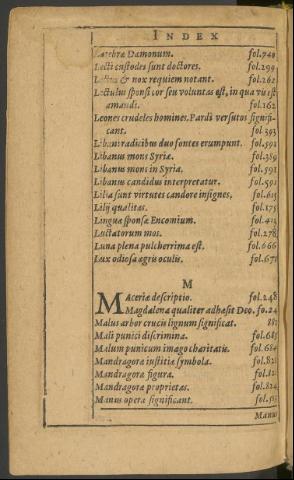 INDEX
Latebræ Dæmonum. fol.740
Lecti custodes sunt doctores. fol.299
Lectus & nox requiem notant. fol.262
Lectulus sponsi cor seu voluntas est, in qua vis est
amandi. fol.262
Leones crudeles homines, Pardi versutos signifi-
cant. fol.593
Libani radicibus duo fontes erumpunt. fol.592
Libanus mons Syriæ. fol.389
Libanus mons in Syria. fol.591
Libanus candidus interpretatur. fol.591
Lilia sunt virtutes candore insignes. fol.615
Lilij qualitas. fol.175
Lingua sponsæ Encomium. fol.413
Luctatorum mos. fol.278
Luna plena pulcherrima est. fol.666
Lux odiosa ægris oculis. fol.671
M
MAceriæ descriptio. fol.248
Magdalena qualiter adhæsit Deo. fo.24
Malus arbor crucis lignum significat. 882
Mali punici discrimina. fol.685
Malum punicum imago charitatis. fol.684
Mandragora iustitiæ symbola. fol.821
Mandragoræ figura. fol.82
Mandragoræ proprietas. fol.824
Manus opera significant. fol.515
Manus